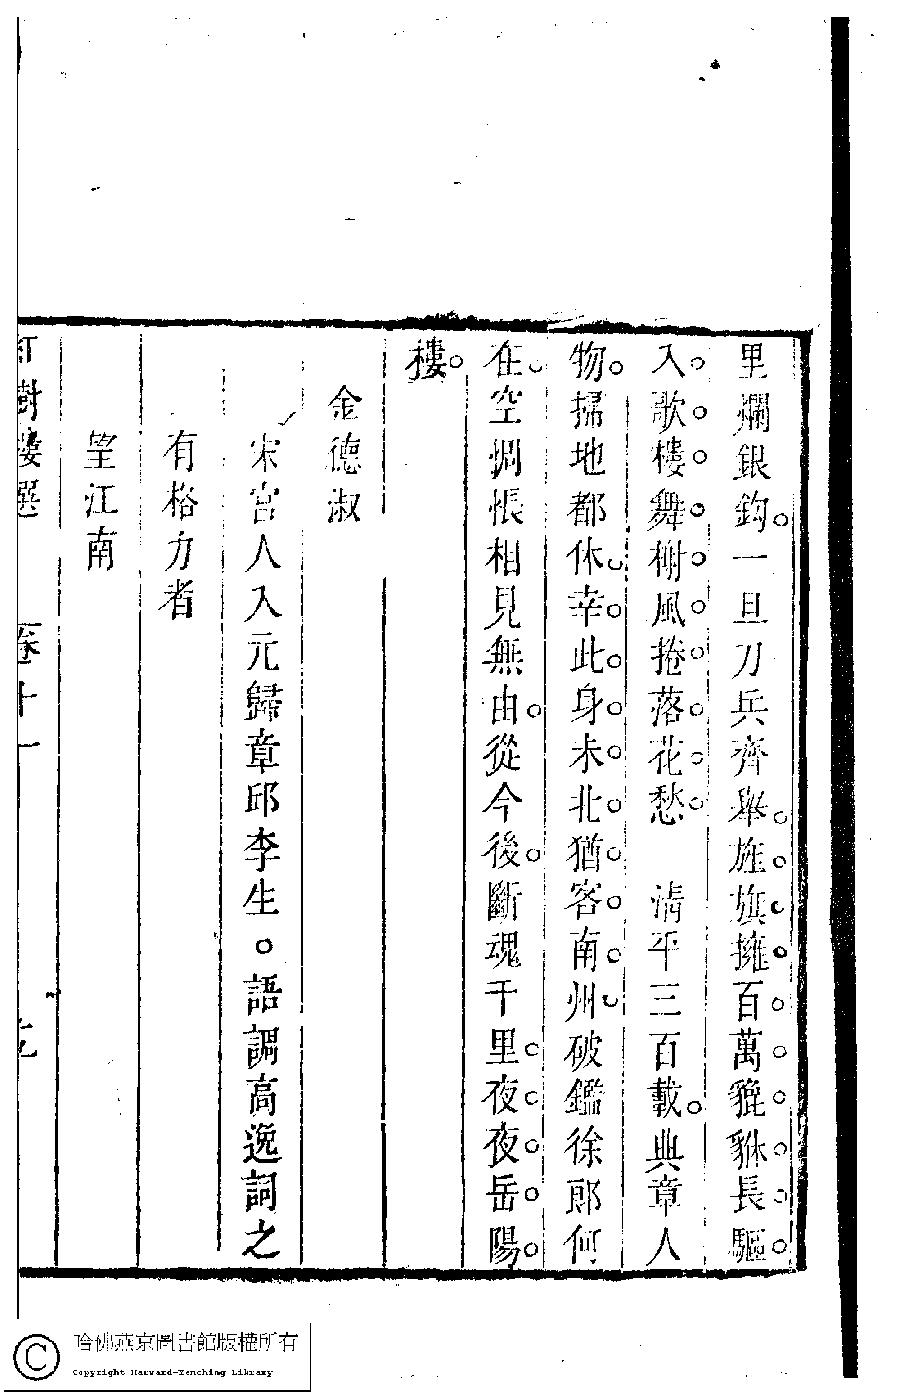 里爛銀鈎。一旦刀兵齊舉。旌旗擁百萬貔貅。長驅。
入。歌。樓。舞。榭。風。捲。落。花。愁。　清平三百載。典章人
物。掃地都休。幸。此。身。未。北。猶。客。南。州。破鑑徐郎何
在。空惆悵相見無由。從今後。斷魂千里。夜。夜。岳。陽。
樓。
金德淑
宋宮人入元歸章邱李生。語調高逸詞之
有格力者
望江南
紅樹樓選
卷十一
哈佛燕京圖書館版權所有
Copyright Harvard-Yenching Library